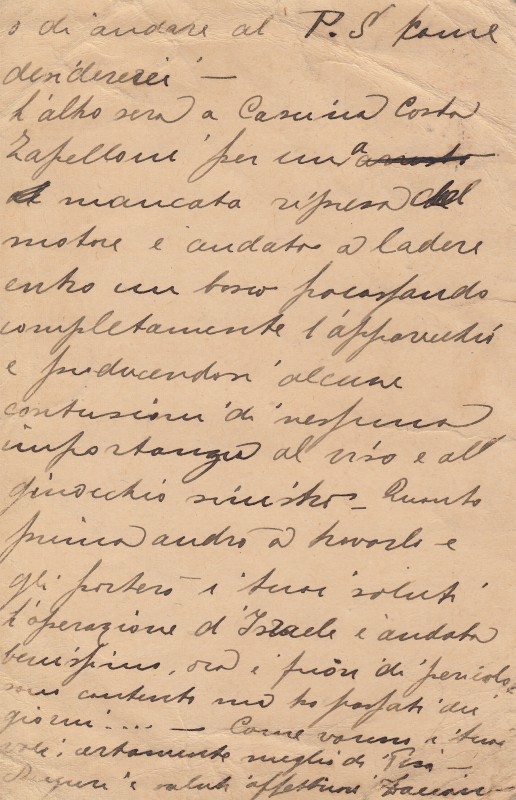 o di andare al P.S come
desidererei —
L'altro sera a Casina Costa
Zapelloni per una arresto
mancata ripresa del
motore è andato a ladere
entro un bosco fracassando
completamente l'apparecchio
e producendosi alcune
contusioni di nessuna
importanza al viso e al
ginocchio sinistro — Quanto
prima andrò a trovarlo e
gli porterò i tuoi saluti
L'operazione d'Israele è andata
benissimo, ora è fuori di pericolo,
sono contento ma ho passati dei
giorni .... — Come vanno i tuoi
voli, certamente meglio di
Auguri e saluti affettuosi